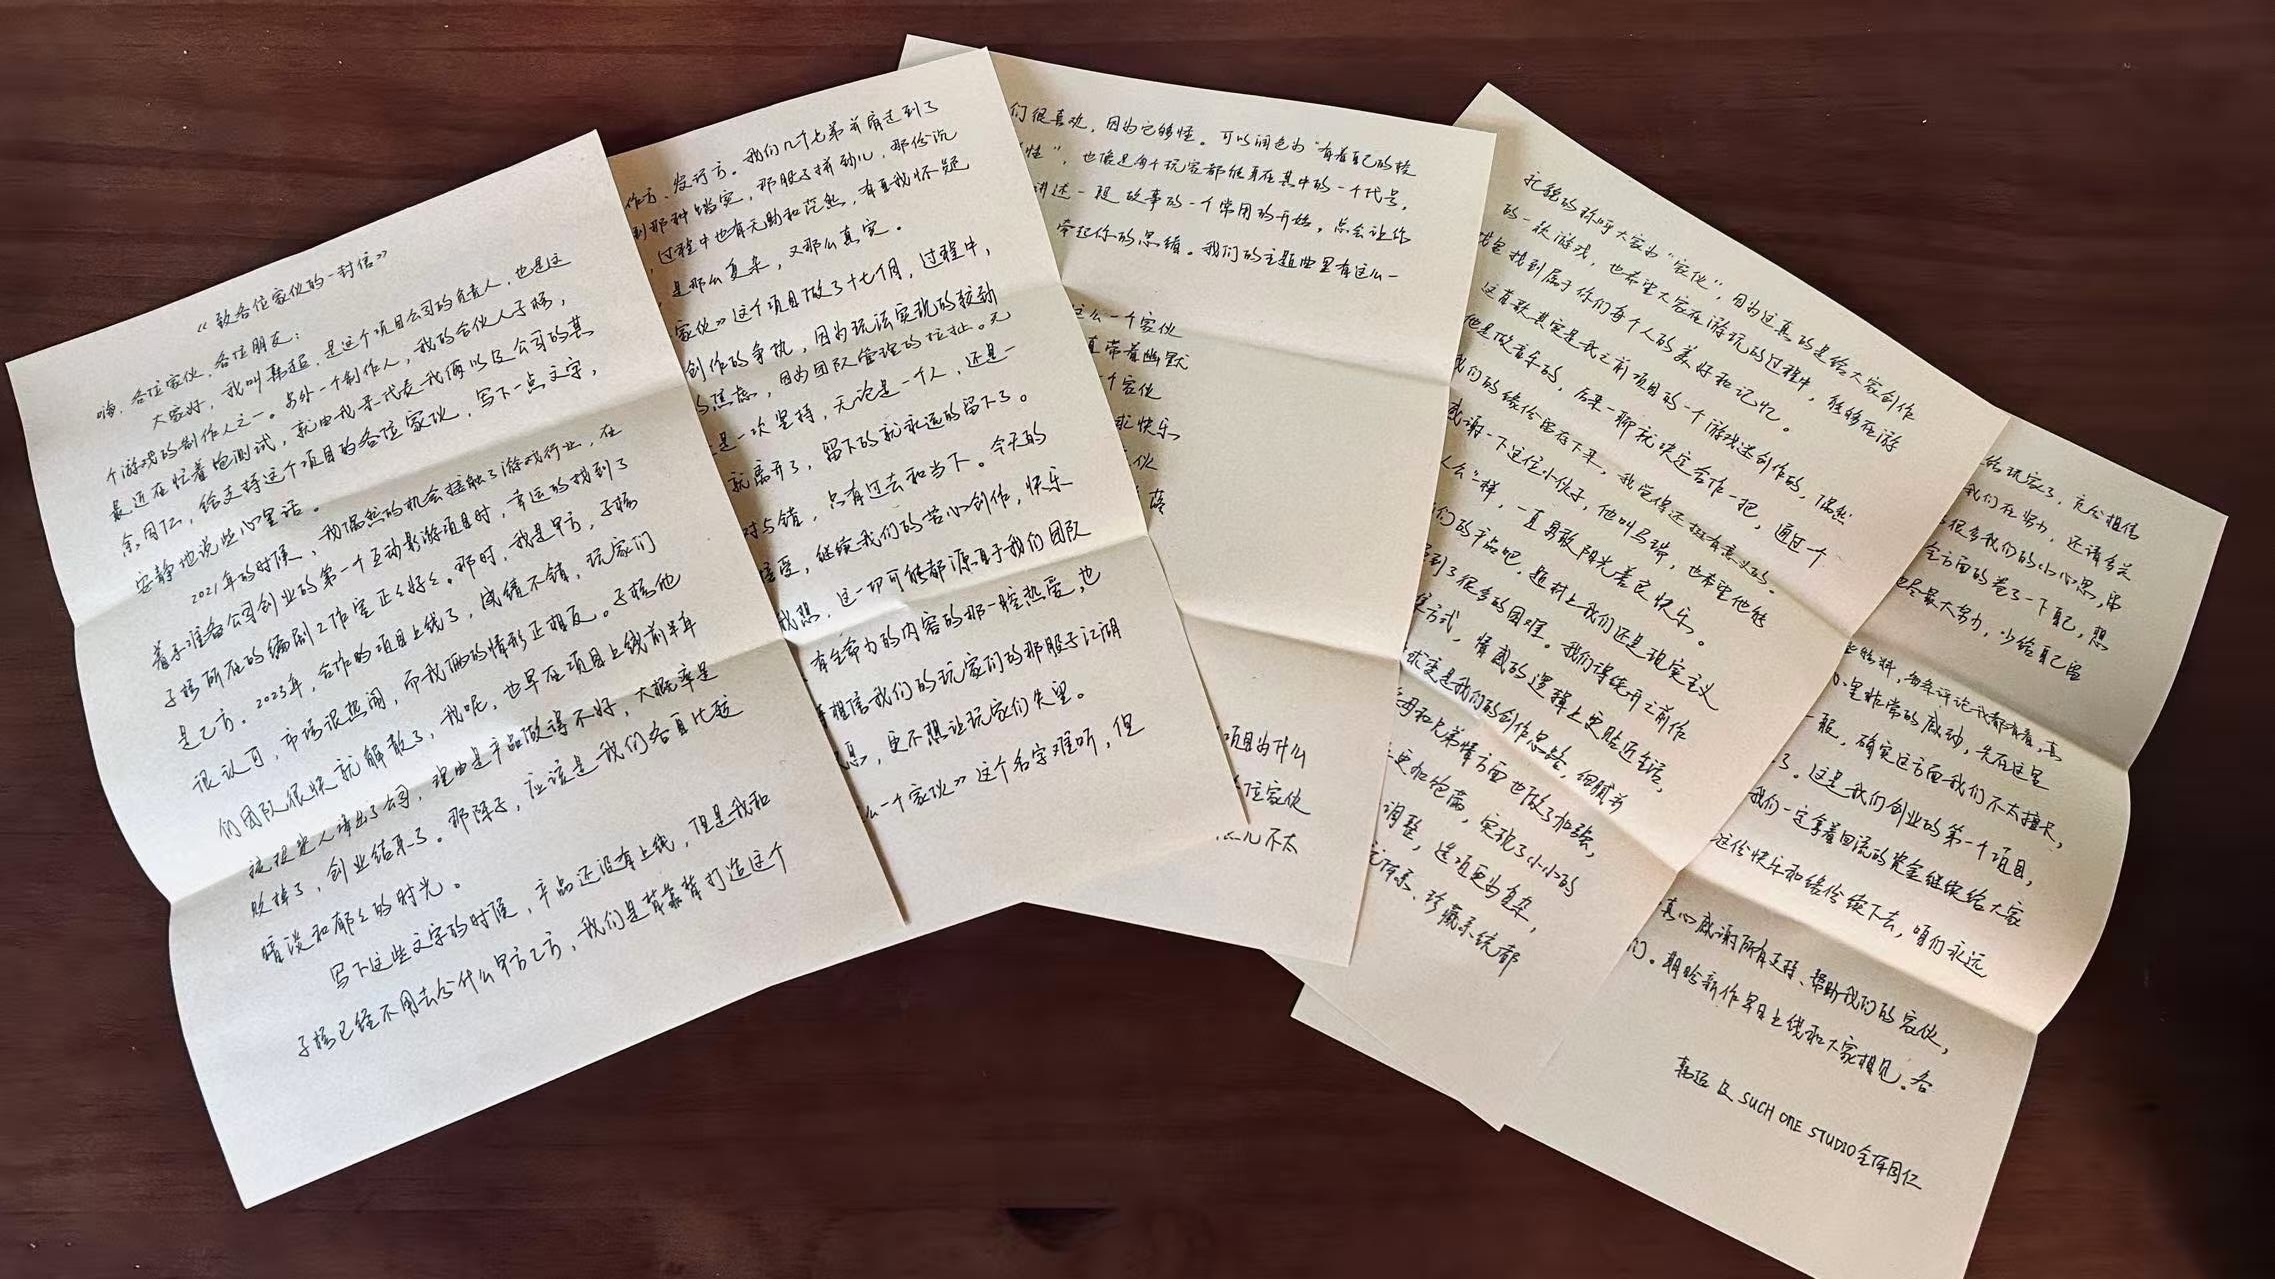 《致各位家伙的一封信》
嗨，各位家伙，各位朋友：
大家好，我叫韩超，是这个项目公司的负责人，也是这
个游戏的制作人之一。另外一个制作人，我的合伙人子杨，
最近在忙着跑测试，就由我来代表我俩以及公司的其
余同仁，给支持这个项目的各位家伙，写下一点文字，
安静地说些心里话。
2021年的时候，我偶然的机会接触了游戏行业，在
着手准备公司创业的第一个互动影游项目时，幸运的找到了
子杨所在的编剧工作室正々好々。那时，我是甲方，子杨
是乙方。2023年，合作的项目上线了，成绩不错，玩家们
很认可，市场很热闹，而我俩的情形正相反。子杨他
们团队很快就解散了，我呢，也早在项目上线前半年
被投资人请出了公司，理由是产品做得不好，大概率是
败掉了，创业结束了。那阵子，应该是我们各自比较
暗淡和郁々的时光。
写下这些文字的时候，产品还没有上线，但是我和
子杨已经不用去分什么甲方乙方，我们是背靠背打造这个
作方、发行方。我们几个七弟并肩走到了
到那种踏实，那股子拼劲儿，那份沉
，过程中也有无助和茫然，有自我怀疑
，是那么复杂，又那么真实。
家伙》这个项目做了十七个月，过程中，
创作的争执，因为玩法实现的移动
的焦虑，因为团队管理的拉扯。无
是一次坚持，无论是一个人，还是一
就离开了，留下的就永远的留下了。
对与错，只有过去和当下。今天的
享受，继续我们的苦心创作，快乐
我想，这一切可能都源自于我们团队
有生命力的内容的那一腔热爱，也
相信我们的玩家们的那股子江湖
息，更不想让玩家们失望。
么一个家伙》这个名字难听，但
们很喜欢，因为它够怪。可以润色为“有着自己的性
怪”，也像是每个玩家都能身在其中的一个代号，
讲述一段故事的一个常用的开始，总会让你
牵起你的思绪。我们的主题曲里有这么一
这么一个家伙
直带着幽默
一个家伙
求快乐
伙
落
项目为什么
各位家伙
儿不太
礼貌的称呼大家为“家伙”，因为这真的是给大家创作
的一款游戏，也希望大家在游玩的过程中，能够在游
戏里找到属于你们每个人的美好和记忆。
这首歌其实是我之前项目的一个游戏迷创作的，偶然
他是做音乐的，后来一聊就决定合作一把，通过一个
我们的缘分留存下来，我觉得还挺有意义的。
感谢一下这位小伙子，他叫马瑞，也希望他能
么”一样，一直勇敢阳光善良快乐。
们的产品吧，题材上我们还是现实主义
到了很多的困难。我们得绕开之前作
方式，情感的逻辑上更贴近生活，
求变是我们的创作思路，细腻并
母和兄弟情方面也做了加强，
更加饱满，实现了小小的
调整，选项更为复杂，
体系、珍藏系统都
给玩家了，充分相信
我们在努力，还请多关
很多我们的小心思，席
全方面的卷了一下自己，想
尽最大努力，少给自己留
些物料，每条评论我都有看，真
心里非常的感动，先在这里
一服，确实这方面我们不太擅长，
了。这是我们创业的第一个项目，
我们一定拿着回流的资金继续给大家
这份快乐和缘分续下去，咱们永远
真心感谢所有支持、帮助我们的家伙，
们。期盼新作早日上线和大家相见。各
韩超 及 SUCH ONE STUDIO全体同仁